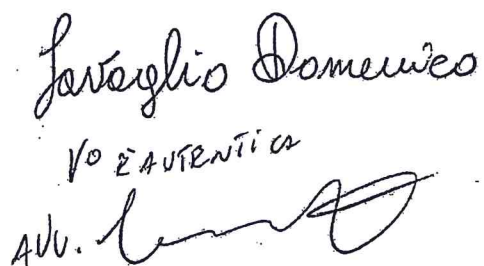 Lavaglio Domenico
Vº È AUTENTICA
AVV.